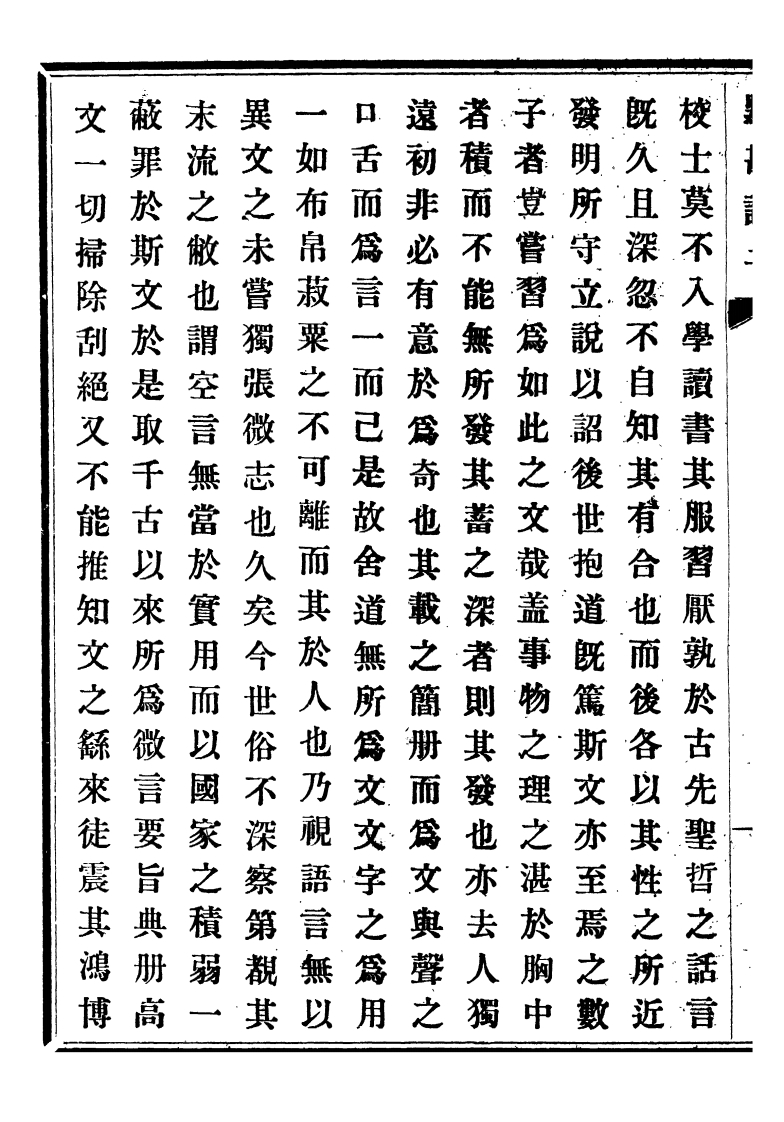 校士莫不入學讀書其服習厭孰於古先聖哲之話言
旣久且深忽不自知其有合也而後各以其性之所近
發明所守立說以詔後世抱道旣篤斯文亦至焉之數
子者豈嘗習爲如此之文哉蓋事物之理之湛於胸中
者積而不能無所發其蓄之深者則其發也亦去人獨
遠初非必有意於爲奇也其載之簡册而爲文與聲之
口舌而爲言一而已是故舍道無所爲文文字之爲用
一如布帛菽粟之不可離而其於人也乃視語言無以
異文之未嘗獨張微志也久矣今世俗不深察第覩其
末流之敝也謂空言無當於實用而以國家之積弱一
蔽罪於斯文於是取千古以來所爲微言要旨典册高
文一切掃除刮絕又不能推知文之繇來徒震其鴻博